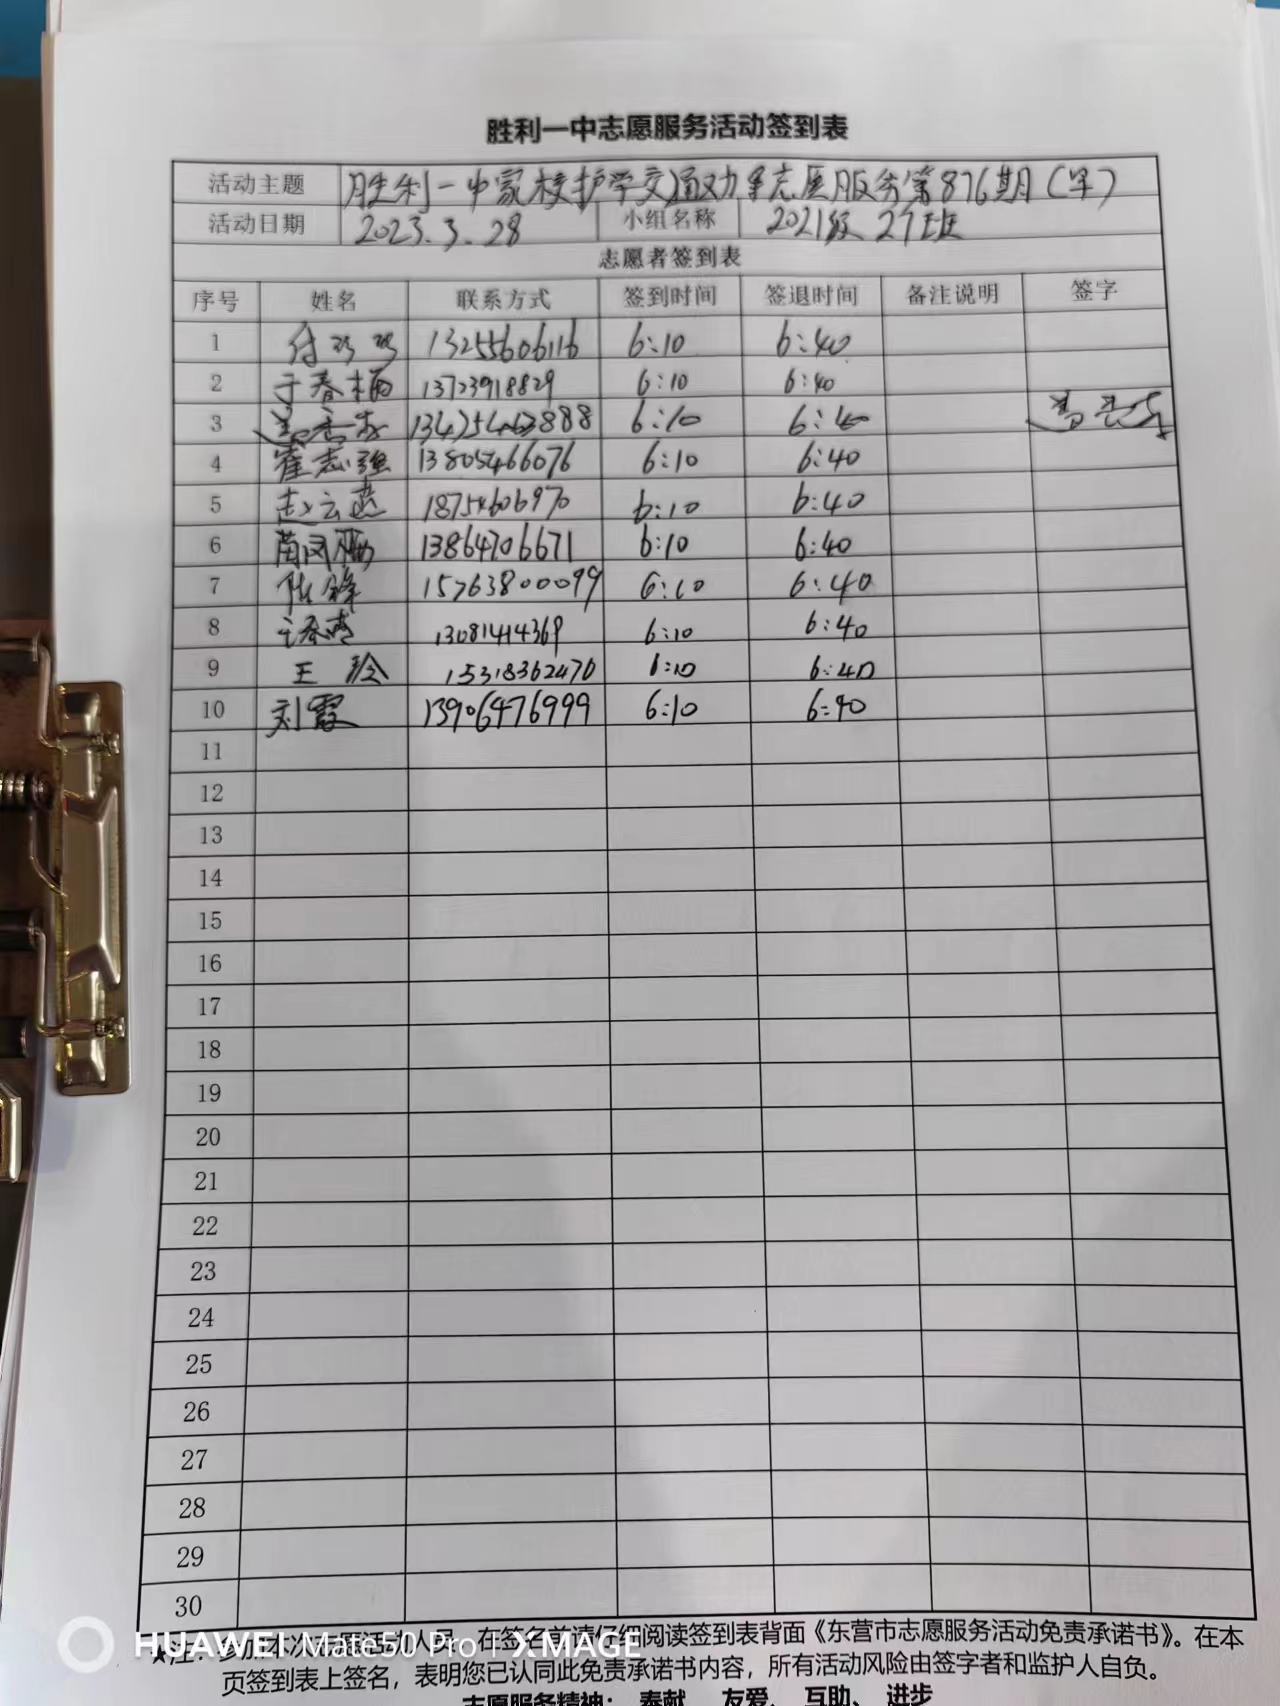 胜利一中志愿服务活动签到表
活动主题 胜利一中家校护学交通劝导志愿服务第876期(早)
活动日期 2023.3.28 小组名称 2021级27班
志愿者签到表
序号 姓名 联系方式 签到时间 签退时间 备注说明 签字
1 付巧巧 13255606116 6:10 6:40
2 于春梅 13723918829 6:10 6:40
3 6:10 6:40
4 崔志强 13805466076 6:10 6:40
5 赵云燕 18754606970 6:10 6:40
6 苗凤丽 13864706671 6:10 6:40
7 陈锋 15763800099 6:10 6:40
8 13081414369 6:10 6:40
9 王玲 15318362476 6:10 6:40
10 刘霞 13906476999 6:10 6:40
11
12
13
14
15
16
17
18
19
20
21
22
23
24
25
26
27
28
29
30
★注：参加本次志愿活动人员，在签名前请仔细阅读签到表背面《东营市志愿服务活动免责承诺书》。在本
页签到表上签名，表明您已认同此免责承诺书内容，所有活动风险由签字者和监护人自负。
志愿服务精神：奉献、友爱、互助、进步
HUAWEI Mate50 Pro | XMAGE